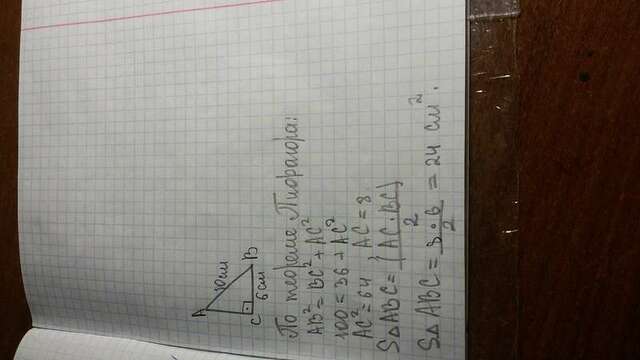 A
10см
C
B
6см
По теореме Пифагора:
AB²=BC²+AC²
100=36+AC²
AC²=64, AC=8
S△ABC=(AC·BC)/2
S△ ABC=8·6/2=24 см².